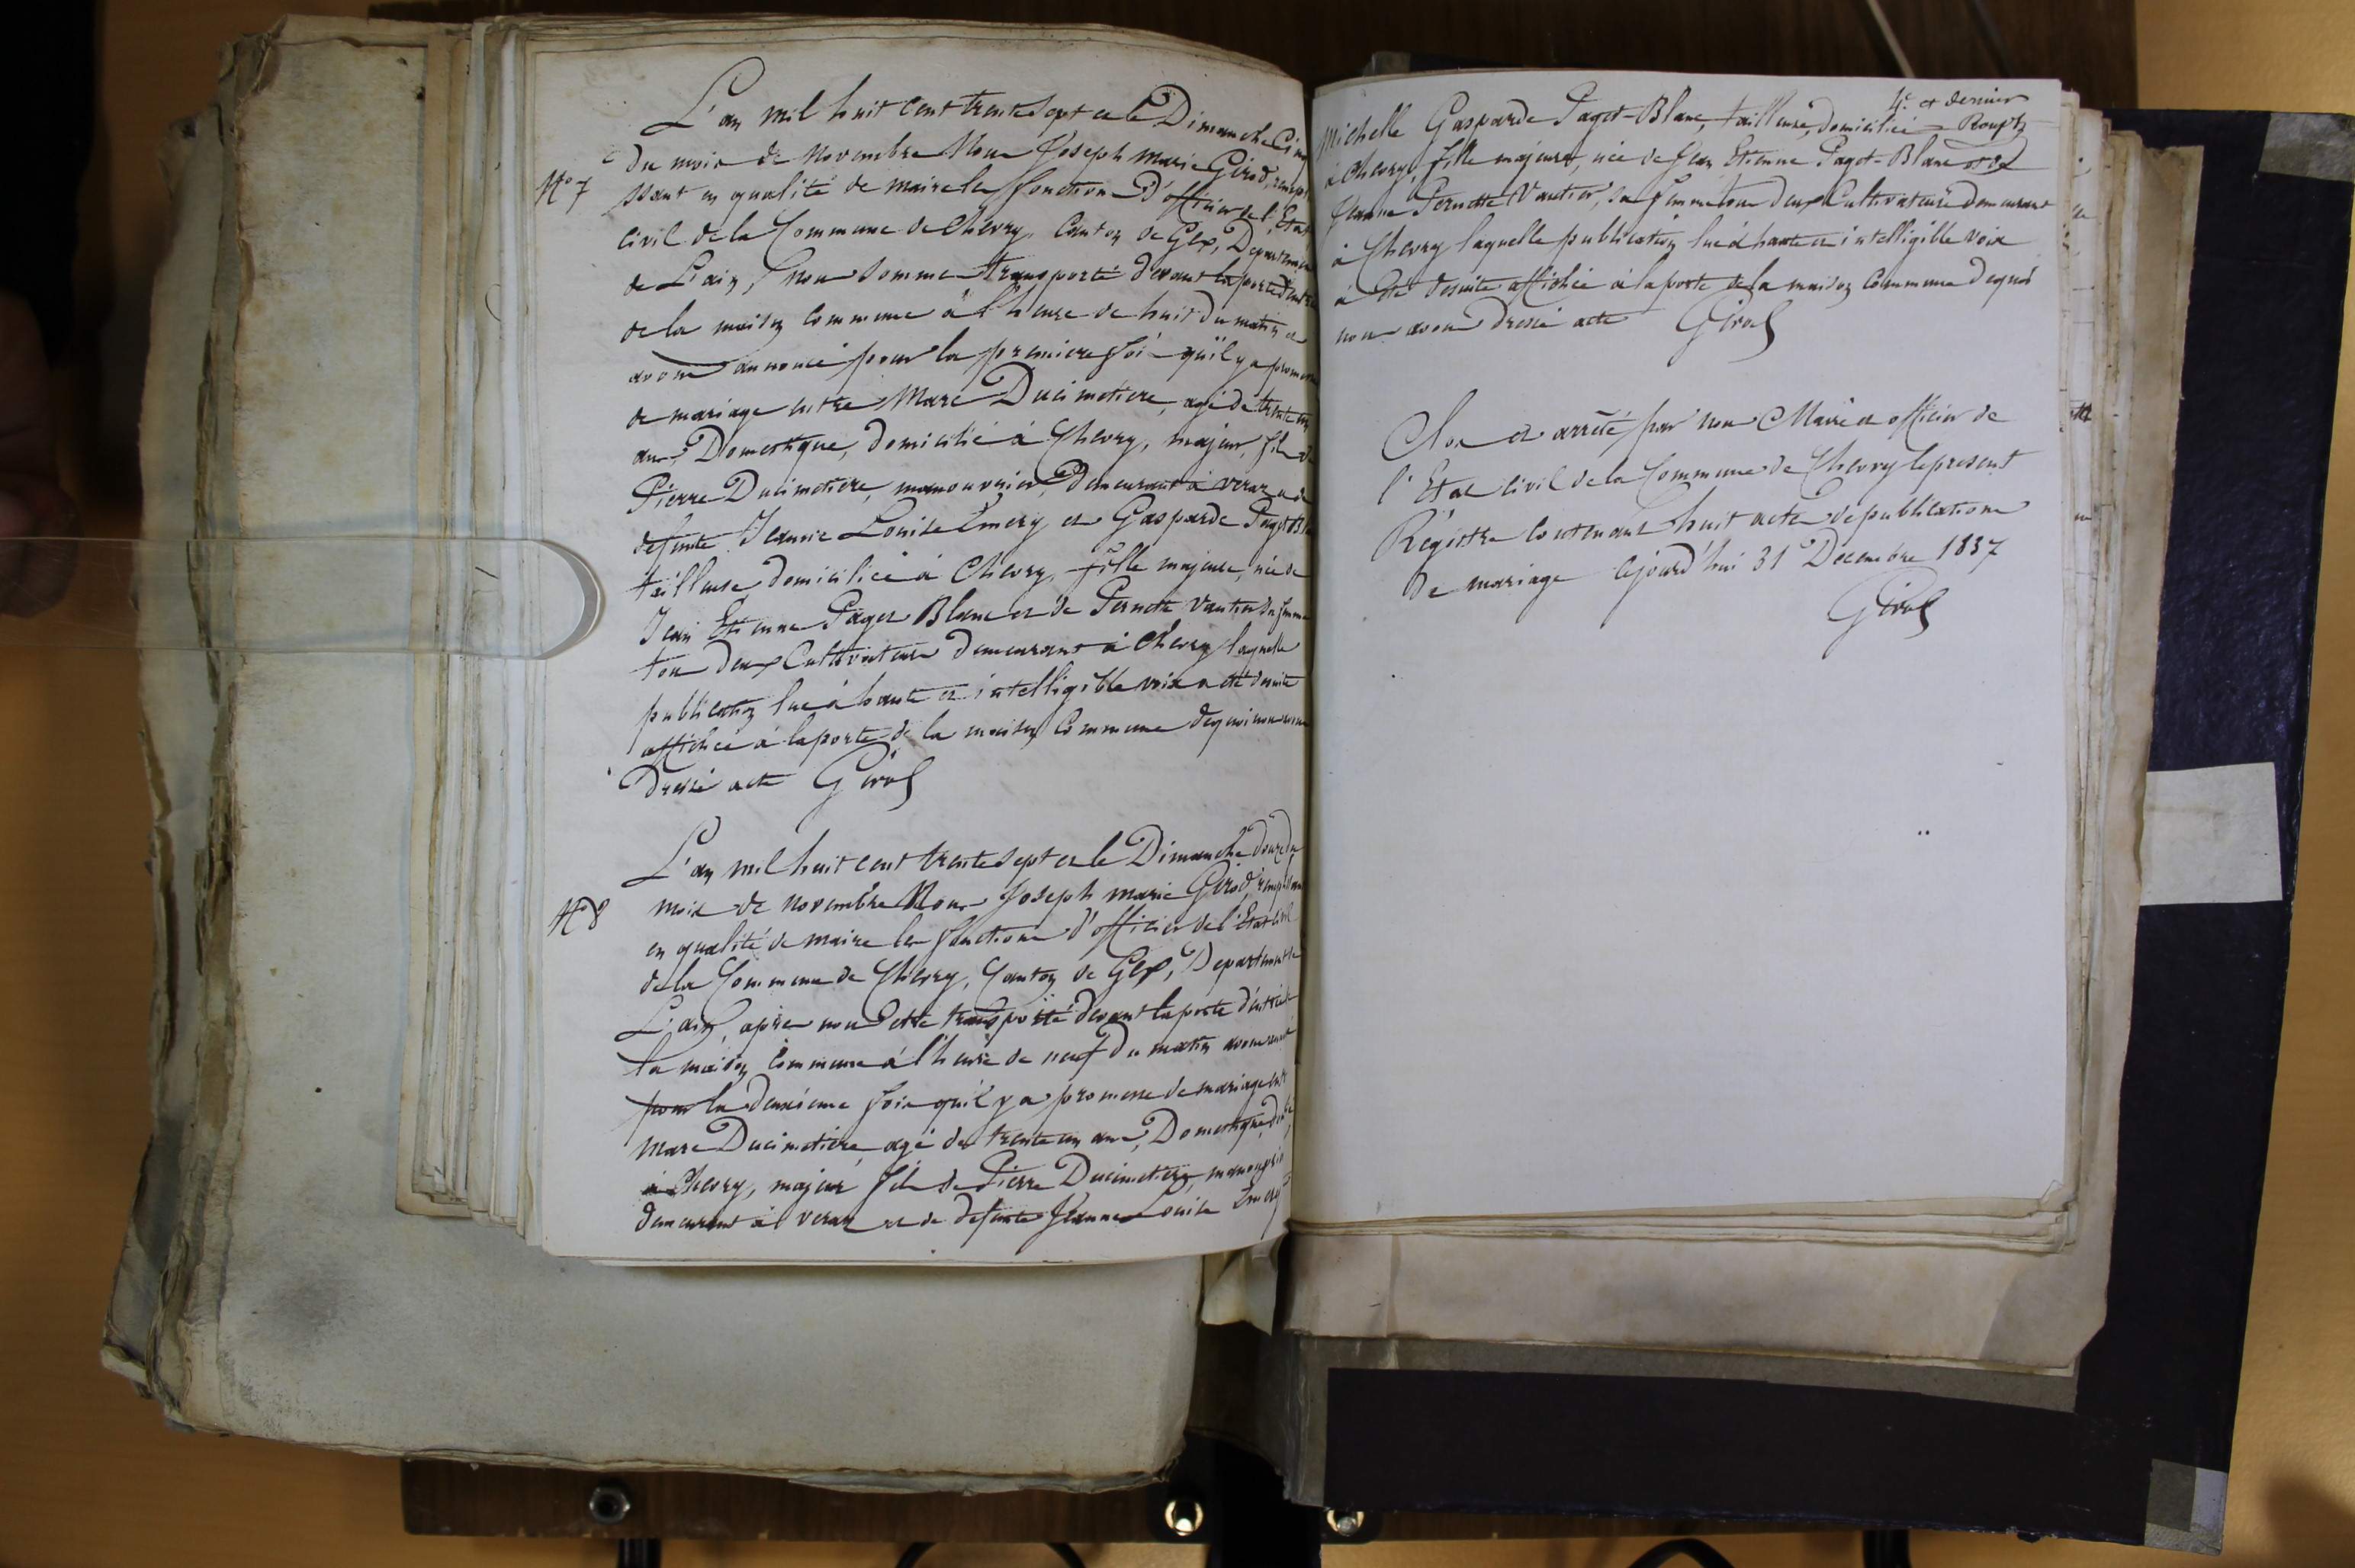 L'an mil huit cent trente sept et le Dimanche Cinq
du mois de Novembre Nous Joseph Marie Girod, remplis
N° 7
sant en qualité de maire les fonctions d'officier de l'Etat
civil de la Commune de Chevry, Canton de Gex, Departement
de L'ain, nous sommes transporté devant la porte d'entrée
de la maison commune à l'heure de huit du matin et
avons annoncé pour la premiere fois qu'il y a promesse
de mariage entre Marc Ducimetiere, agé de trente un
ans, Domestique, domicilié à Chevry, majeur, fils de
Pierre Ducimetiere, manouvrier, demeurant à Veraz et de
defunte Jeanne Louise Emery et Gasparde Paget Bla
tailleuse, domiciliée à Chevry, fille majeure, née de
Jean Etienne Paget Blanc et de Pernette Vautier sa femme
tous deux Cultivateurs demeurant à Chevry laquelle
publication lue à haute et intelligible voix a été desuite
affichée à la porte de la maison Commune dequoi nous avons
Dressé acte Girod
L'an mil huit cent trente sept et le Dimanche douze du
N° 8
mois de novembre Nous Joseph marie Girod, remplissant
en qualité de maire les fonctions d'officier de l'Etat civil
de la Commune de Chevry, Canton de Gex, Departement de
L'ain, après nous être transporté devant la porte d'entrée de
la maison Commune à l'heure de neuf du matin avons annoncé
pour la deuxieme fois qu'il y a promesse de mariage entre
Marc Ducimetière, agé de trente un ans, Domestique,
à Chevry, majeur fils de Pierre Ducimetiere, manouvrier
demeurant à Veraz et de defunte Jeanne Louise Emery
4e. et dernier
Michelle Gasparde Paget-Blanc, tailleuse, domiciliée
à Chevry, fille majeure, née de Jean Etienne Paget-Blanc et de
Jeanne Pernette Vautier, sa femme tous deux Cultivateurs demeurant
à Chevry laquelle publication lue à haute et intelligible voix
à été desuite affichée à la porte de la maison Commune dequoi
nous avons dressé acte Girod
Clos et arrêté par nous Maire et officier de
l'Etat civil de la Commune de Chevry le present
Régistre contenant huit actes de publications
de mariage cejourd'hui 31 Decembre 1837
Girod